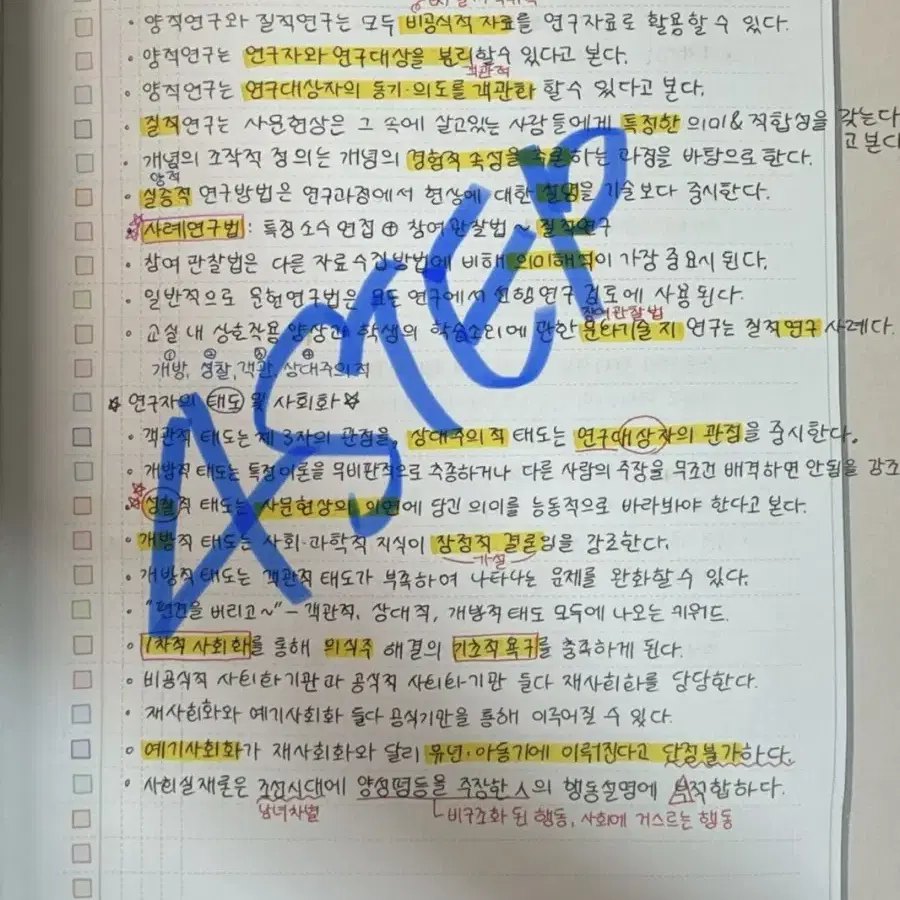 · 양적연구와 질적연구는 모두 비공식적 자료를 연구자료로 활용할 수 있다.
· 양적연구는 연구자와 연구대상을 분리할 수 있다고 본다.
객관적
· 양적연구는 연구대상자의 동기·의도를 객관화 할 수 있다고 본다.
· 질적연구는 사문현상은 그 속에 살고있는 사람들에게 특정한 의미& 적합성을 갖는다
고 본다
· 개념의 조작적 정의는 개념의 경험적 속성을 추론하는 과정을 바탕으로 한다.
양적
· 실증적 연구방법은 연구과정에서 현상에 대한 설명을 기술보다 중시한다.
사례연구법 : 특정소수 면접 ⊕ 참여관찰법 ~ 질적연구
· 참여 관찰법은 다른 자료수집방법에 비해 의미해석이 가장 중요시 된다.
· 일반적으로 문헌연구법은 모든 연구에서 선행연구 검토에 사용된다.
참여관찰법
· 교실 내 상호작용 양상과 학생의 학습소외에 관한 문화기술지 연구는 질적연구 사례다.
① ② ③ ④
개방, 성찰, 객관, 상대주의적
☆ 연구자의 태도 및 사회화 ☆
· 객관적 태도는 제 3자의 관점을, 상대주의적 태도는 연구대상자의 관점을 중시한다.
· 개방적 태도는 특정이론을 무비판적으로 추종하거나 다른 사람의 주장을 무조건 배격하면 안됨을 강조
성찰적 태도는 사문현상의 이면에 담긴 의미를 능동적으로 바라봐야 한다고 본다.
· 개방적 태도는 사회·과학적 지식이 잠정적 결론임을 감조한다.
가설
· 개방적 태도는 객관적 태도가 부족하여 나타나는 문제를 완화할 수 있다.
· "편견을 버리고~" - 객관적, 상대적, 개방적 태도 모두에 나오는 키워드
· 1차적 사회화를 통해 의식주 해결의 기초적 욕구를 충족하게 된다.
· 비공식적 사회화기관과 공식적 사회화기관 둘다 재사회화를 담당한다.
· 재사회화와 예기사회화 둘다 공식기관을 통해 이루어질 수 있다.
· 예기사회화가 재사회화와 달리 유년·아동기에 이뤄진다고 단정불가하다.
· 사회실재론은 조선시대에 양성평등을 주장한 人의 행동설명에 부적합하다.
남녀차별
└ 비구조화 된 행동, 사회에 거스르는 행동
ASTEP